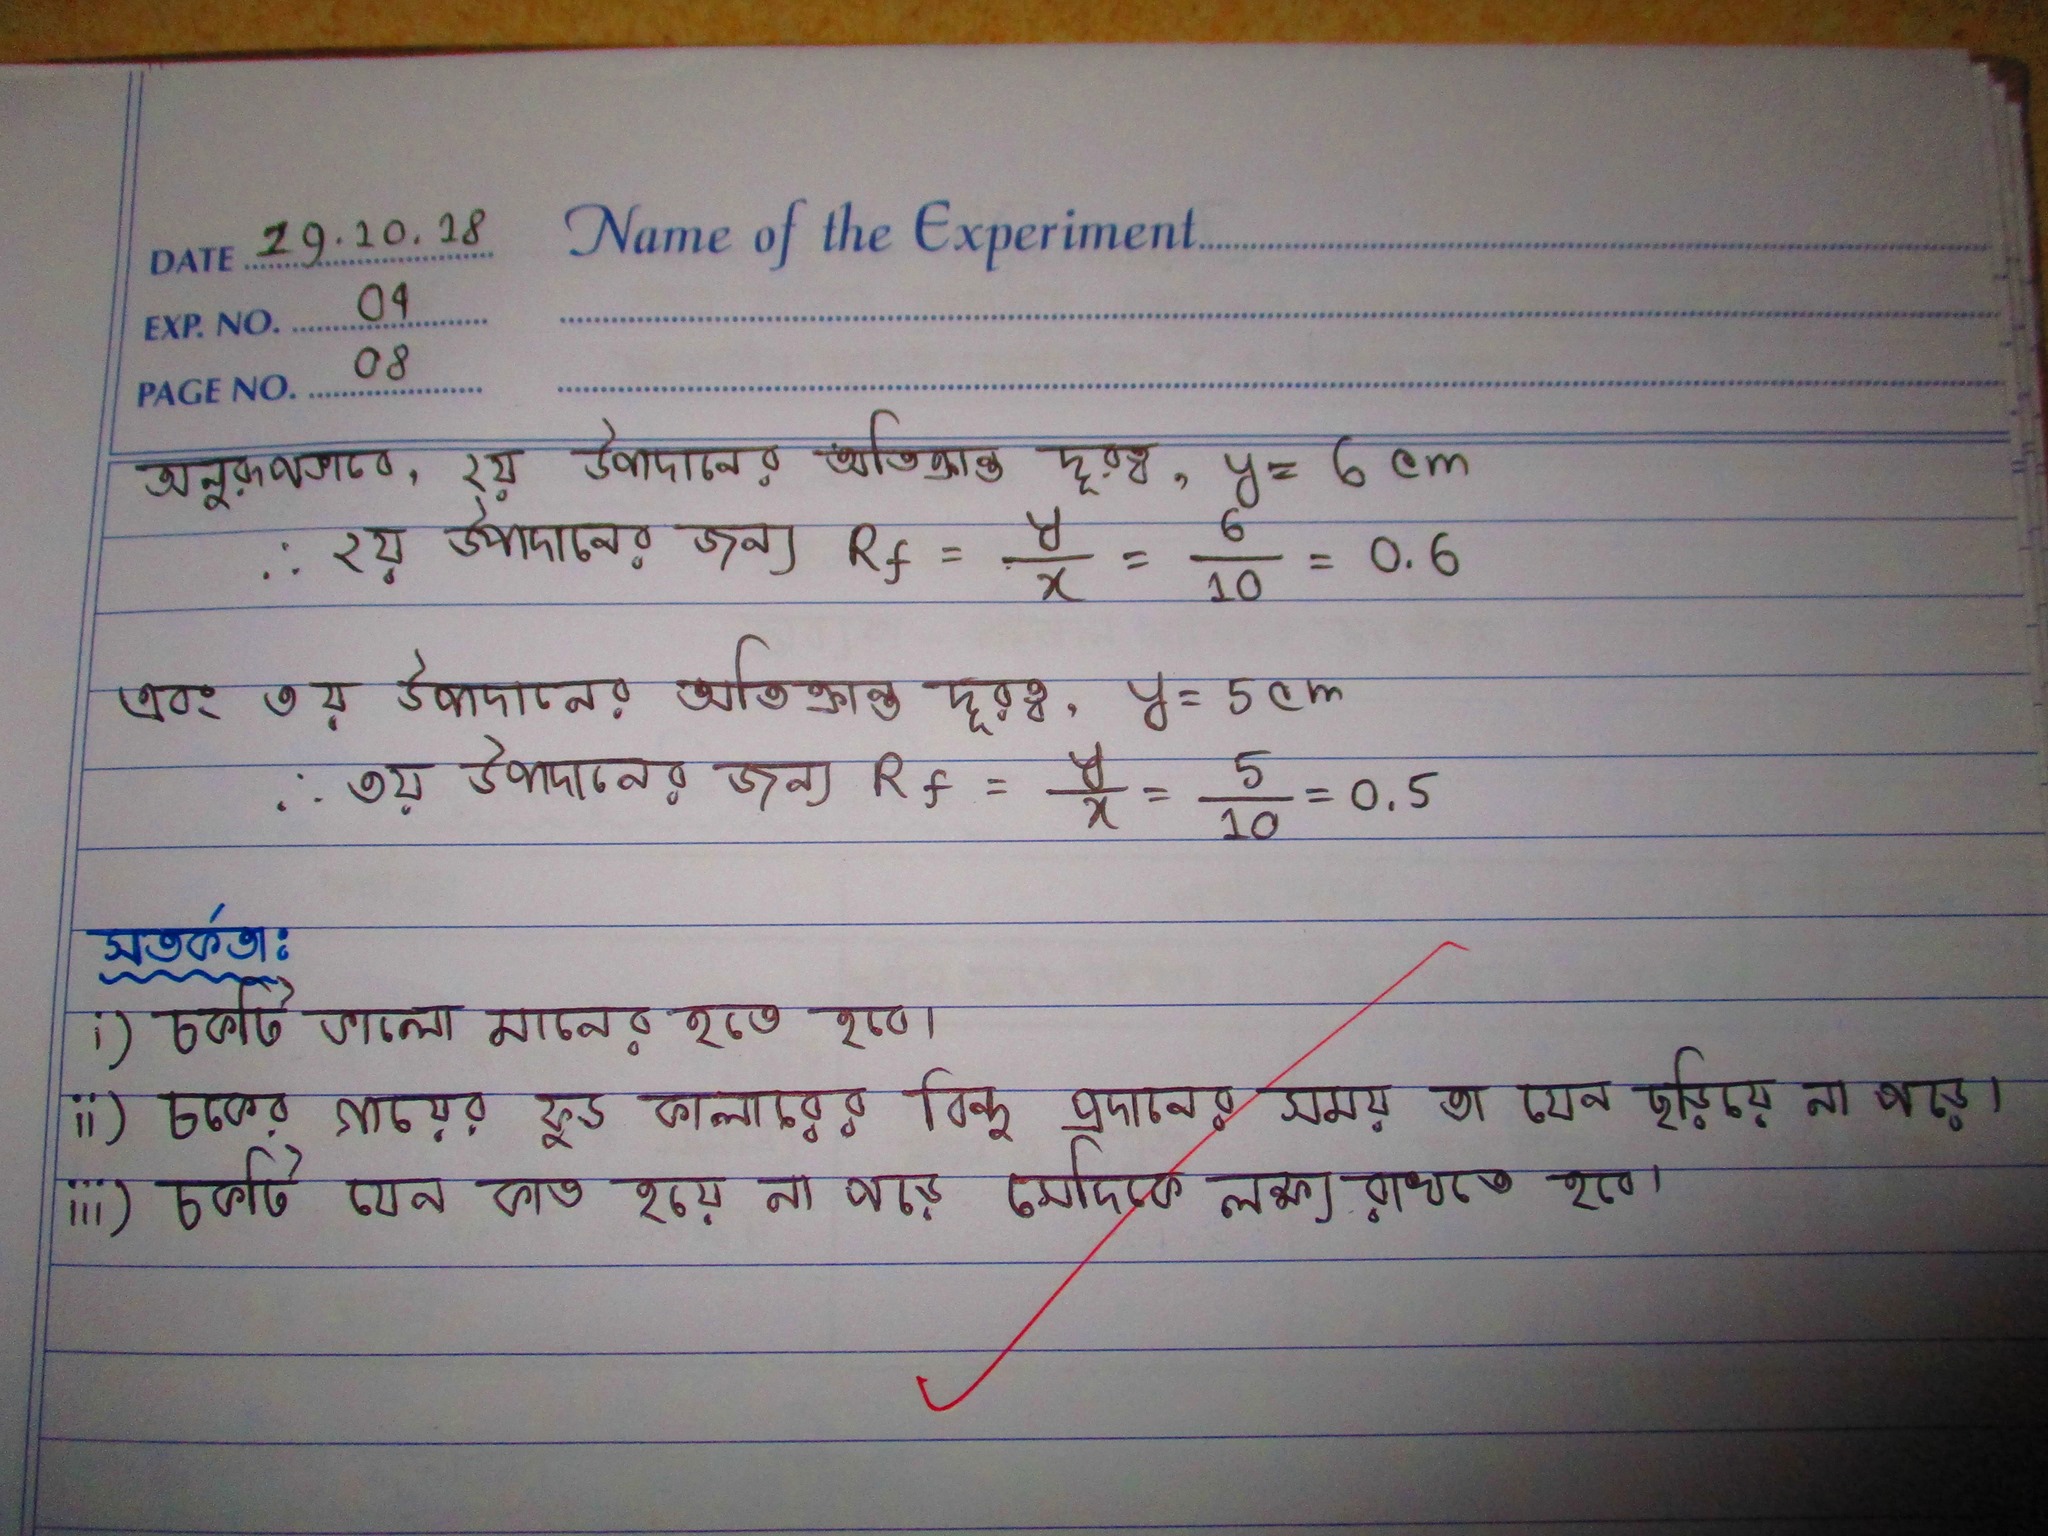 DATE 29.10.18 Name of the Experiment
EXP. NO. 04
PAGE NO. 08
অনুরূপভাবে, ২য় উপাদানের অতিক্রান্ত দূরত্ব, y = 6 cm
∴ ২য় উপাদানের জন্য Rf = y/x = 6/10 = 0.6
এবং ৩য় উপাদানের অতিক্রান্ত দূরত্ব, y = 5 cm
∴ ৩য় উপাদানের জন্য Rf = y/x = 5/10 = 0.5
সতর্কতাঃ
i) চকটি ভালো মানের হতে হবে।
ii) চকের গায়ের ফুড কালারের বিন্দু প্রদানের সময় তা যেন ছড়িয়ে না পড়ে।
iii) চকটি যেন কাত হয়ে না পড়ে সেদিকে লক্ষ্য রাখতে হবে।